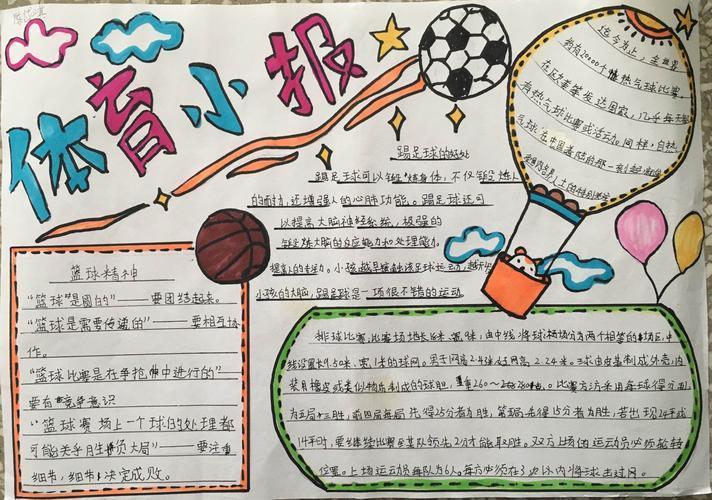 体育小报
迄今为止，全世界
约有20000个热气球比赛，
在欧美等发达国家，几乎每天都
有热气球比赛或活动。同样，自热
气球在中国着陆的那一刻起
踢足球的好处
踢足球可以锻炼身体，不仅锻炼人
的耐力，还增强人的心肺功能。踢足球还可
以提高大脑神经系统，极强的
锻炼大脑的反应能力和处理能力。
小孩越早接触该足球运动，越
小孩的大脑，踢足球是一项很不错的运动
篮球精神
“篮球”是圆的”——要团结起来。
“篮球是需要传递的”——要相互协
作。
“篮球比赛是在争抢中进行的”——
要有竞争意识
“篮球赛场上一个球的处理都
可能关乎月生负大局”——要注重
细节，细节决定成败。
排球比赛，比赛场地长18米，宽9米，由中线将球场分为两个相等的场区，中
线设置长9.50米、宽1米的球网。男子网高2.43米，女网高2.24米。球由皮革制成外壳，内
装月橡皮或类似物质制成的球胆，重260～280。比赛方法采用每球得分制，
为五局三胜，前四局每局先得25分者为胜，第五局先得15分者为胜，若出现24平或
14平时，要继续比赛至某队领先2分才能取胜。双方上场的运动员必须轮转
位置。上场运动员每队为6人。每方必须在3次以内将球击过网。